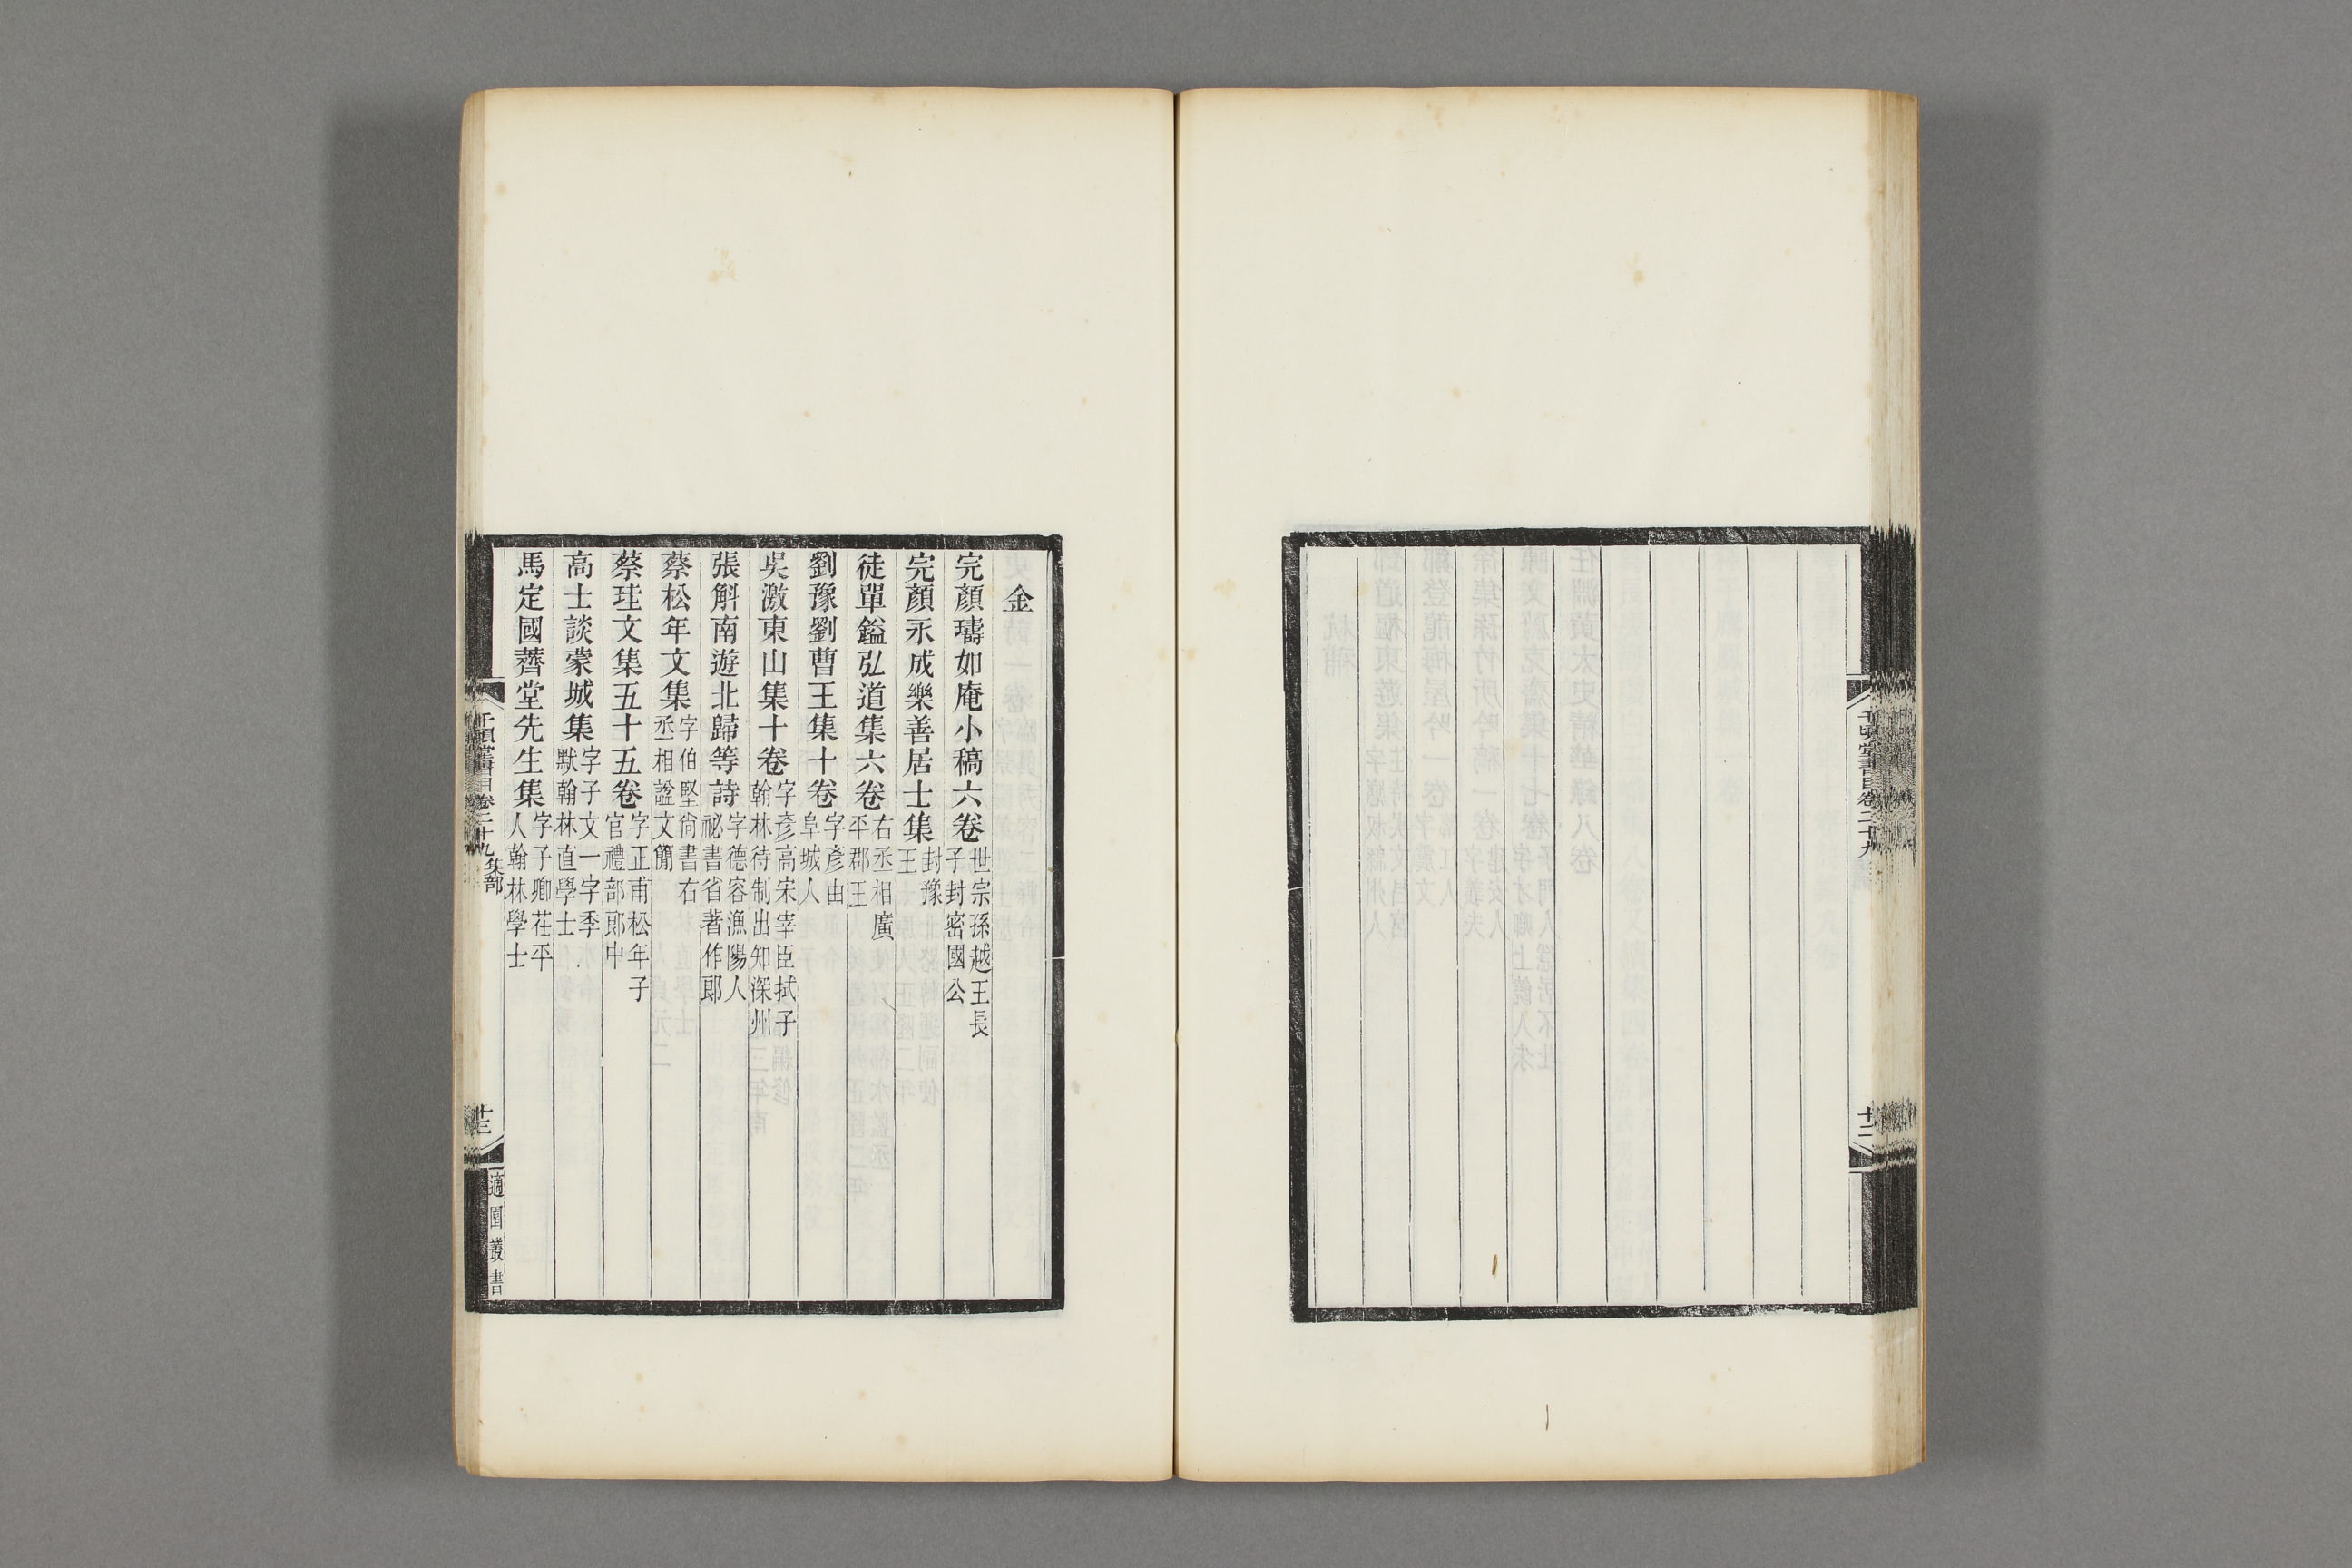 千頃堂書目卷二十九
十二
金
完顏璹如庵小稿六卷世宗孫越王長子封密國公
完顏永成樂善居士集封豫王
徒單鎰弘道集六卷右丞相廣平郡王
劉豫劉曹王集十卷字彥由阜城人
吳激東山集十卷字彥高宋宰臣拭子翰林待制出知深州
張斛南遊北歸等詩字德容漁陽人祕書省著作郎
蔡松年文集字伯堅尙書右丞相諡文簡
蔡珪文集五十五卷字正甫松年子官禮部郎中
高士談蒙城集字子文一字季默翰林直學士
馬定國薺堂先生集字子卿茌平人翰林學士
千頃堂書目卷二十九 集部
十三
適園叢書